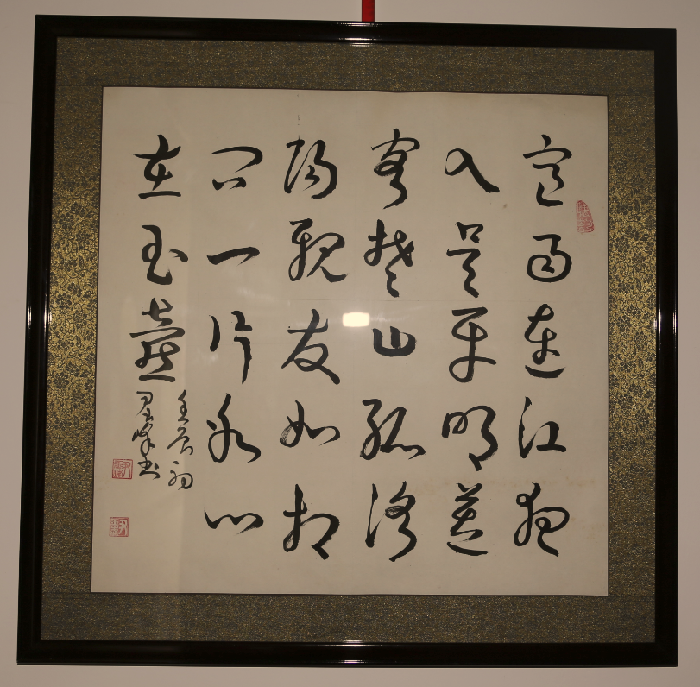 寒雨連江夜
入吳平明送
客楚山孤洛
陽親友如相
問一片冰心
在玉壺
壬辰初
峰书